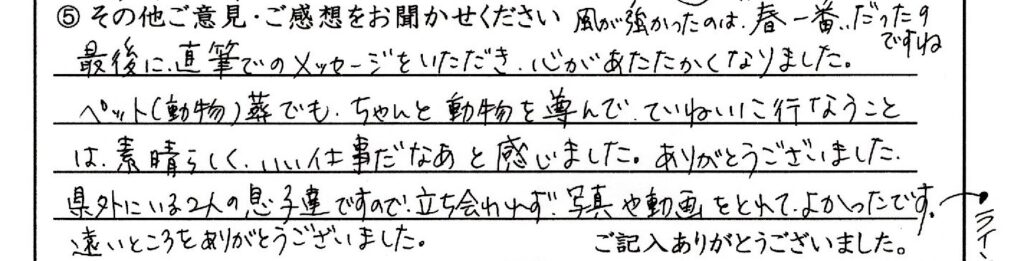 ⑤ その他ご意見・ご感想をお聞かせください 風が強かったのは、春一番..だったの
ですね
最後に、直筆でのメッセージをいただき、心があたたかくなりました。
ペット(動物)葬でも、ちゃんと動物を尊んで、ていねいに行なうこと
は、素晴らしく、いい仕事だなあと感じました。ありがとうございました、
県外にいる2人の息子達ですので、立ち会われず、写真や動画をとれて、よかったです。
遠いところをありがとうございました。
ご記入ありがとうございました。
ライン